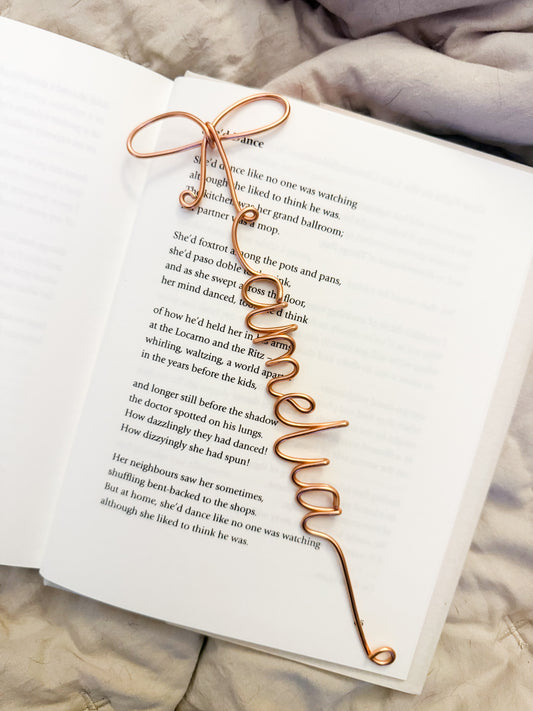 She'd dance like no one was watching
although she liked to think he was.
The kitchen was her grand ballroom;
partner was a mop.
She'd foxtrot among the pots and pans,
she'd paso doble
and as she swept across the floor,
her mind danced, think
of how he'd held her in his arms
at the Locarno and the Ritz
whirling, waltzing, a world apart
in the years before the kids,
and longer still before the shadow
the doctor spotted on his lungs.
How dazzlingly they had danced!
How dizzyingly she had spun!
Her neighbours saw her sometimes,
shuffling bent-backed to the shops.
But at home, she'd dance like no one was watching
although she liked to think he was.
amelia